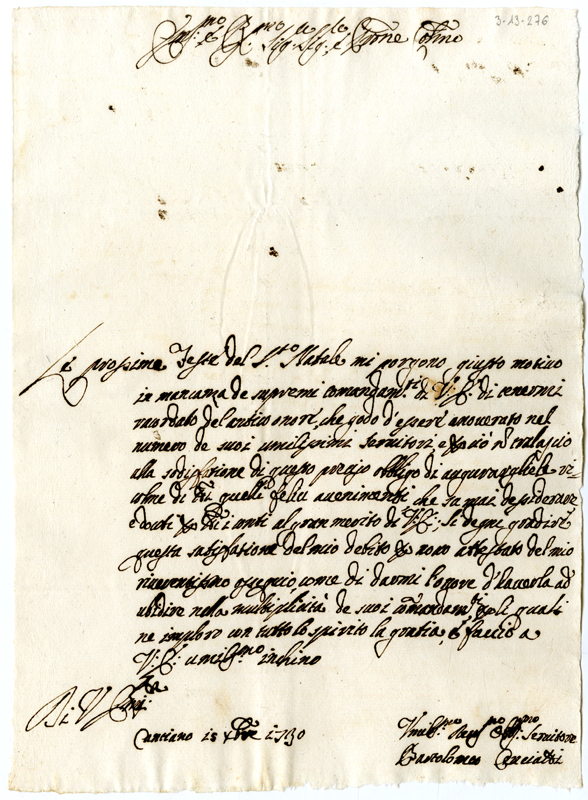 3-13-276
Ill.mo e R.mo Sig. Sig. e Prone Colmo
Le prossime Feste del S.to Natale mi porgono giusto motivo
in mancanza de supremi comandam.ti di V: E: di tenermi
ricordato del antico onore, che godo d'essere anoverato nel
numero de suoi umilissimi servitori, e però nõ tralascio
alla sodisfatione di questo pregio obligo di augurargliele ri-
colme di tutti quelli felici avenimenti che sa mai desiderare
e dovuti al gran merito di V: E: si degni gradire
questa satisfatione del mio debito per novo attestato del mio
riverentissimo ossequio come di darmi l'onore d'haverla ad
ubidire nella multiplicità de suoi comandam.ti per li quali
ne imploro con tutto lo spirito la gratia, e faccio a
V: E: umiliss.mo inchino
Di V E
Canciano 15 Xbre 1730
Umil.mo Servitore
Bartolomeo